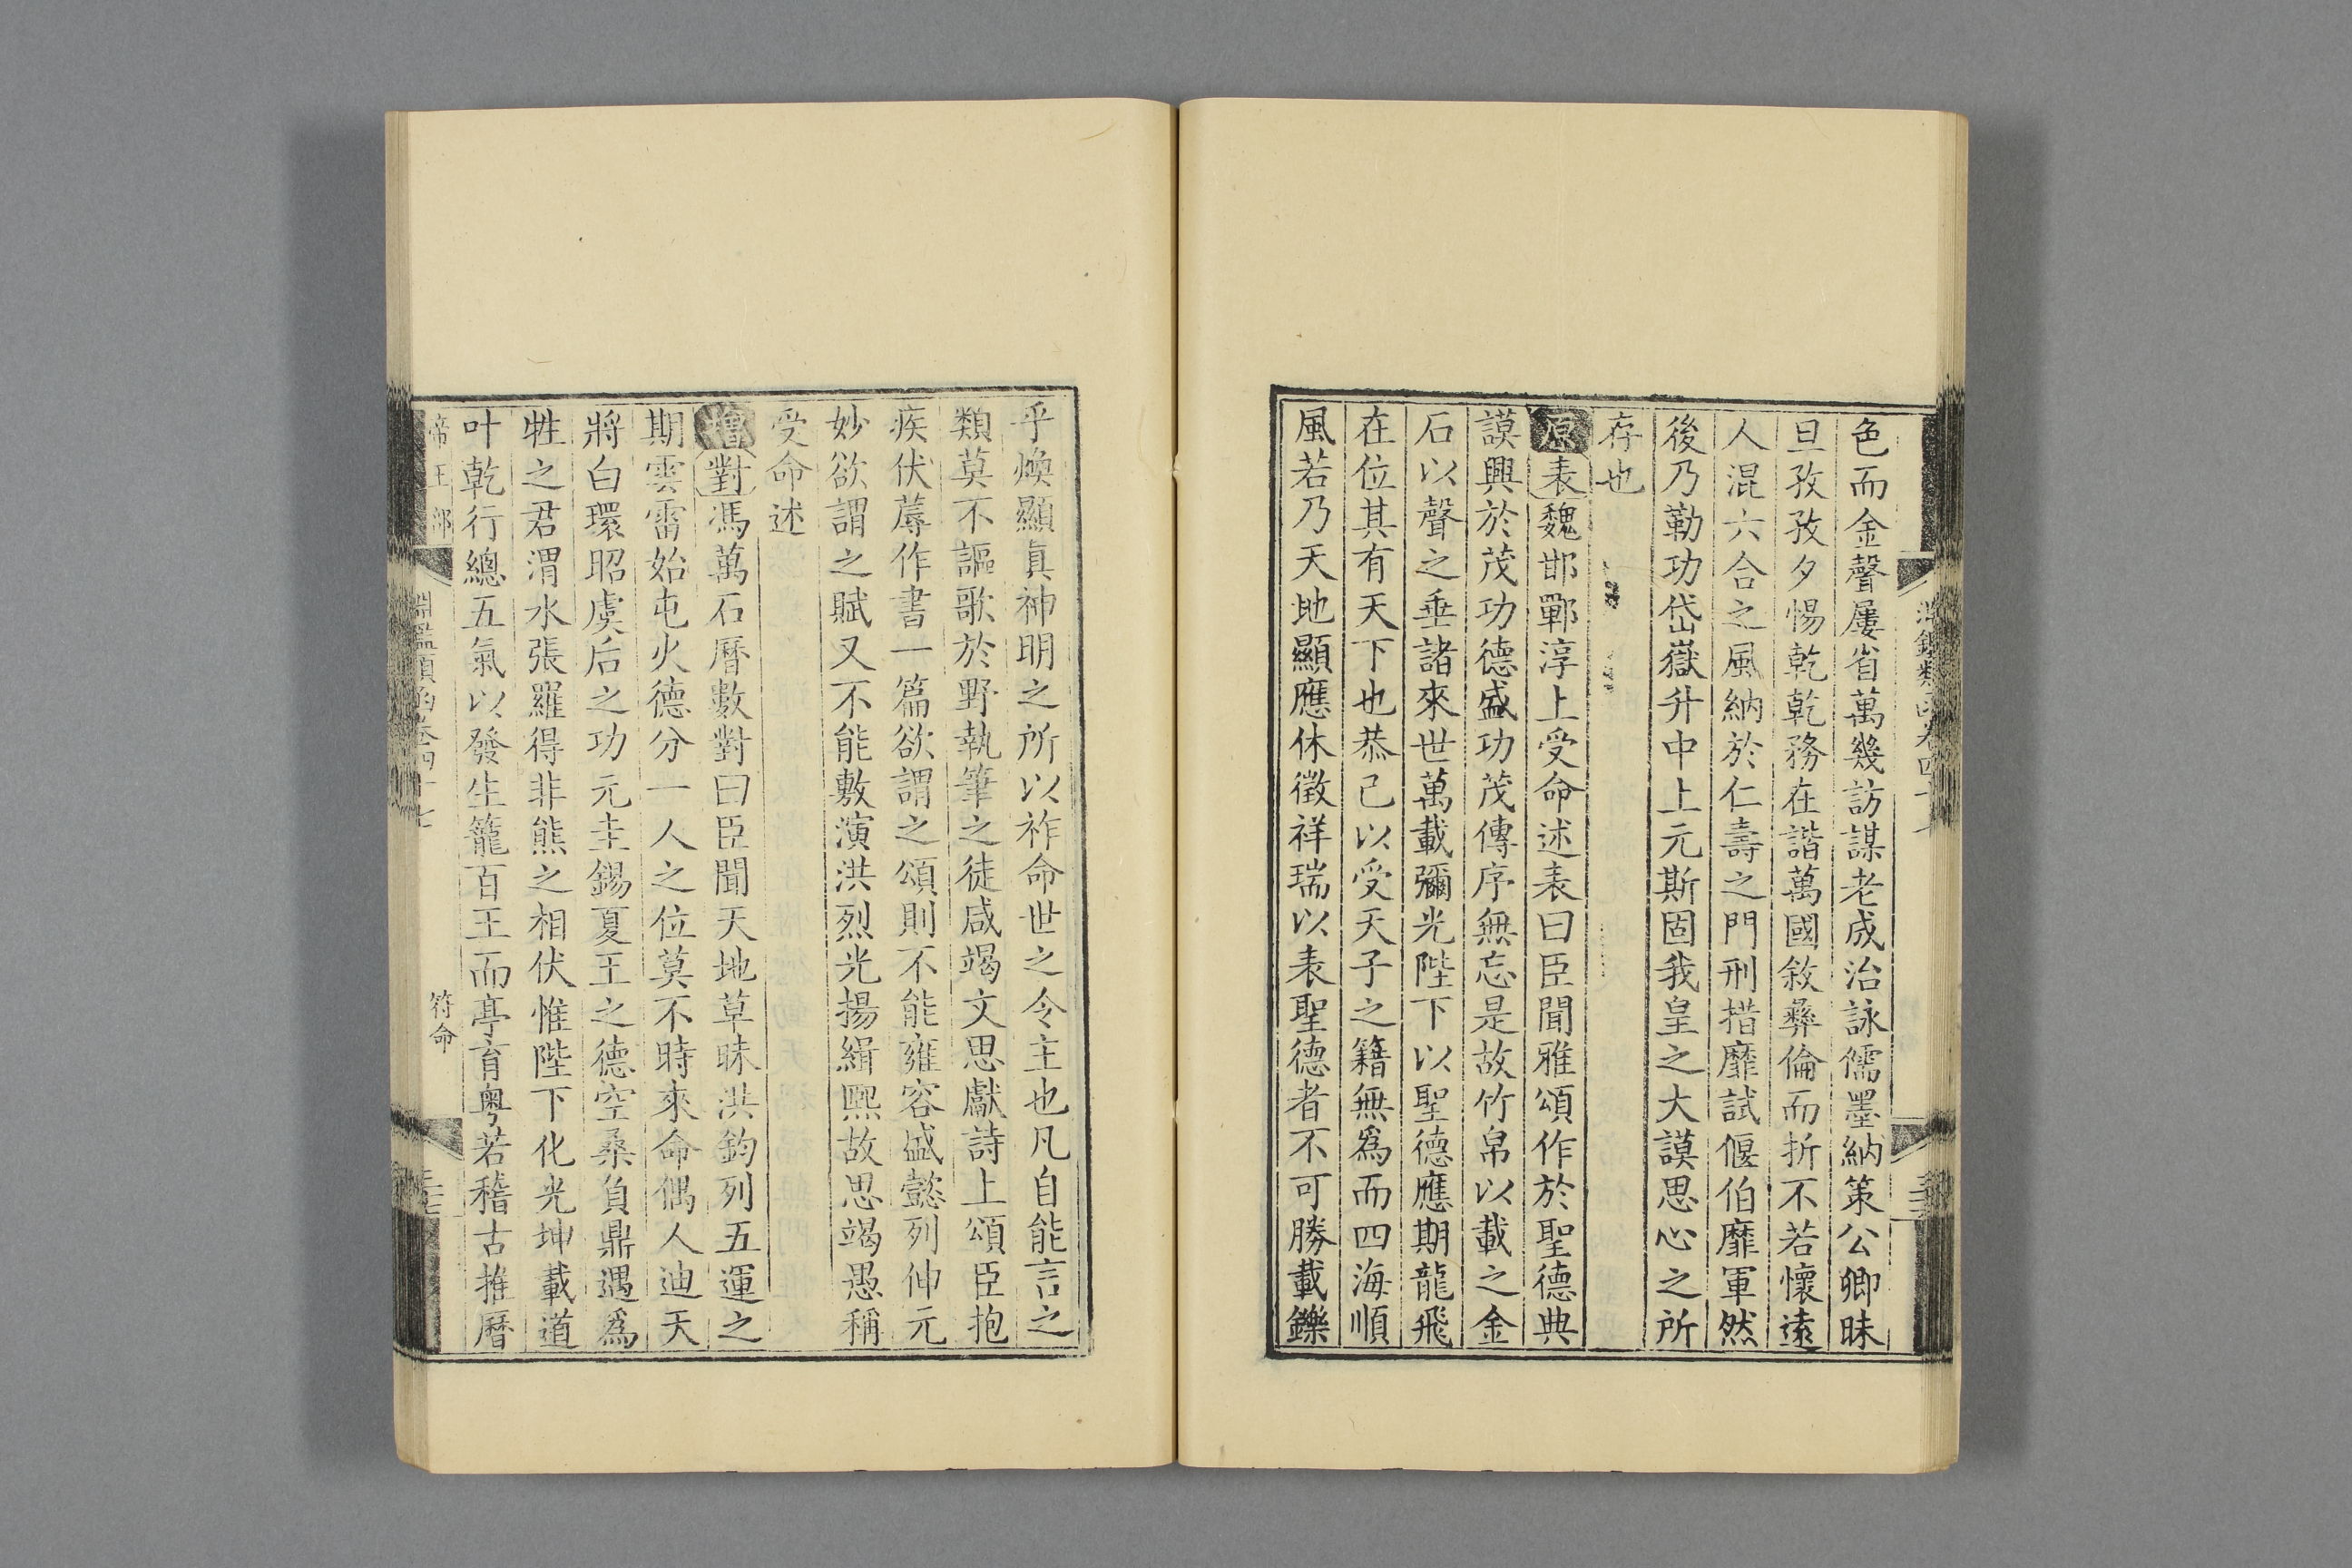 色而金聲屢省萬幾訪謀老成治詠儒墨納策公卿昧
旦孜孜夕惕乾乾務在諧萬國敘彝倫而折不若懷遠
人混六合之風納於仁壽之門刑措靡試偃伯靡軍然
後乃勒功岱嶽升中上元斯固我皇之大謨思心之所
存也
原表魏邯鄲淳上受命述表曰臣聞雅頌作於聖德典
謨興於茂功德盛功茂傳序無忘是故竹帛以載之金
石以聲之垂諸來世萬載彌光陛下以聖德應期龍飛
在位其有天下也恭己以受天子之籍無為而四海順
風若乃天地顯應休徵祥瑞以表聖德者不可勝載鑠
乎煥顯真神明之所以祚命世之令主也凡自能言之
類莫不謳歌於野執筆之徒咸竭文思獻詩上頌臣抱
疾伏蓐作書一篇欲謂之頌則不能雍容盛懿列伸元
妙欲謂之賦又不能敷演洪烈光揚緝熙故思竭愚稱
受命述
增對馮萬石曆數對曰臣聞天地草昧洪鈞列五運之
期雲雷始屯火德分一人之位莫不時來命偶人迪天
將白環昭虞后之功元圭錫夏王之德空桑負鼎遇為
牲之君渭水張羅得非熊之相伏惟陛下化光坤載道
叶乾行總五氣以發生籠百王而亭育粵若稽古推曆
帝王部
符命
淵鑑類函卷四十七